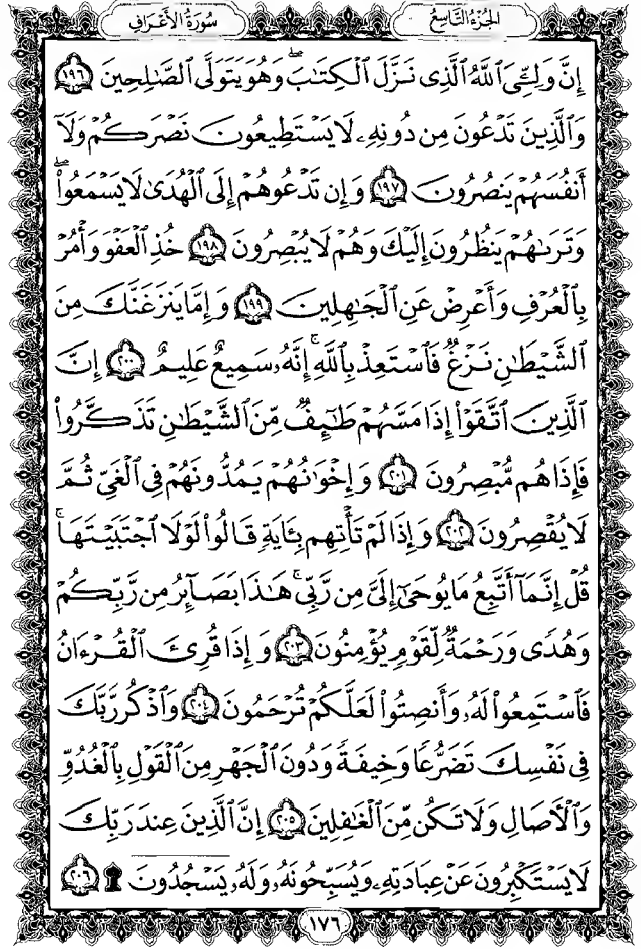 الجزء التاسع
سورة الأعراف
إِنَّ وَلِـِّۧيَ ٱللَّهُ ٱلَّذِى نَزَّلَ ٱلْكِتَٰبَ ۖ وَهُوَ يَتَوَلَّى ٱلصَّٰلِحِينَ ١٩٦
وَٱلَّذِينَ تَدْعُونَ مِن دُونِهِۦ لَا يَسْتَطِيعُونَ نَصْرَكُمْ وَلَآ
أَنفُسَهُمْ يَنصُرُونَ ١٩٧ وَإِن تَدْعُوهُمْ إِلَى ٱلْهُدَىٰ لَا يَسْمَعُوا۟ ۖ
وَتَرَىٰهُمْ يَنظُرُونَ إِلَيْكَ وَهُمْ لَا يُبْصِرُونَ ١٩٨ خُذِ ٱلْعَفْوَ وَأْمُرْ
بِٱلْعُرْفِ وَأَعْرِضْ عَنِ ٱلْجَٰهِلِينَ ١٩٩ وَإِمَّا يَنزَغَنَّكَ مِنَ
ٱلشَّيْطَٰنِ نَزْغٌ فَٱسْتَعِذْ بِٱللَّهِ ۚ إِنَّهُۥ سَمِيعٌ عَلِيمٌ ٢٠٠ إِنَّ
ٱلَّذِينَ ٱتَّقَوْا۟ إِذَا مَسَّهُمْ طَٰٓئِفٌ مِّنَ ٱلشَّيْطَٰنِ تَذَكَّرُوا۟
فَإِذَا هُم مُّبْصِرُونَ ٢٠١ وَإِخْوَٰنُهُمْ يَمُدُّونَهُمْ فِى ٱلْغَىِّ ثُمَّ
لَا يُقْصِرُونَ ٢٠٢ وَإِذَا لَمْ تَأْتِهِم بِـَٔايَةٍ قَالُوا۟ لَوْلَا ٱجْتَبَيْتَهَا ۚ
قُلْ إِنَّمَآ أَتَّبِعُ مَا يُوحَىٰٓ إِلَىَّ مِن رَّبِّى ۚ هَٰذَا بَصَآئِرُ مِن رَّبِّكُمْ
وَهُدًى وَرَحْمَةٌ لِّقَوْمٍ يُؤْمِنُونَ ٢٠٣ وَإِذَا قُرِئَ ٱلْقُرْءَانُ
فَٱسْتَمِعُوا۟ لَهُۥ وَأَنصِتُوا۟ لَعَلَّكُمْ تُرْحَمُونَ ٢٠٤ وَٱذْكُر رَّبَّكَ
فِى نَفْسِكَ تَضَرُّعًا وَخِيفَةً وَدُونَ ٱلْجَهْرِ مِنَ ٱلْقَوْلِ بِٱلْغُدُوِّ
وَٱلْءَاصَالِ وَلَا تَكُن مِّنَ ٱلْغَٰفِلِينَ ٢٠٥ إِنَّ ٱلَّذِينَ عِندَ رَبِّكَ
لَا يَسْتَكْبِرُونَ عَنْ عِبَادَتِهِۦ وَيُسَبِّحُونَهُۥ وَلَهُۥ يَسْجُدُونَ ۩ ٢٠٦
١٧٦